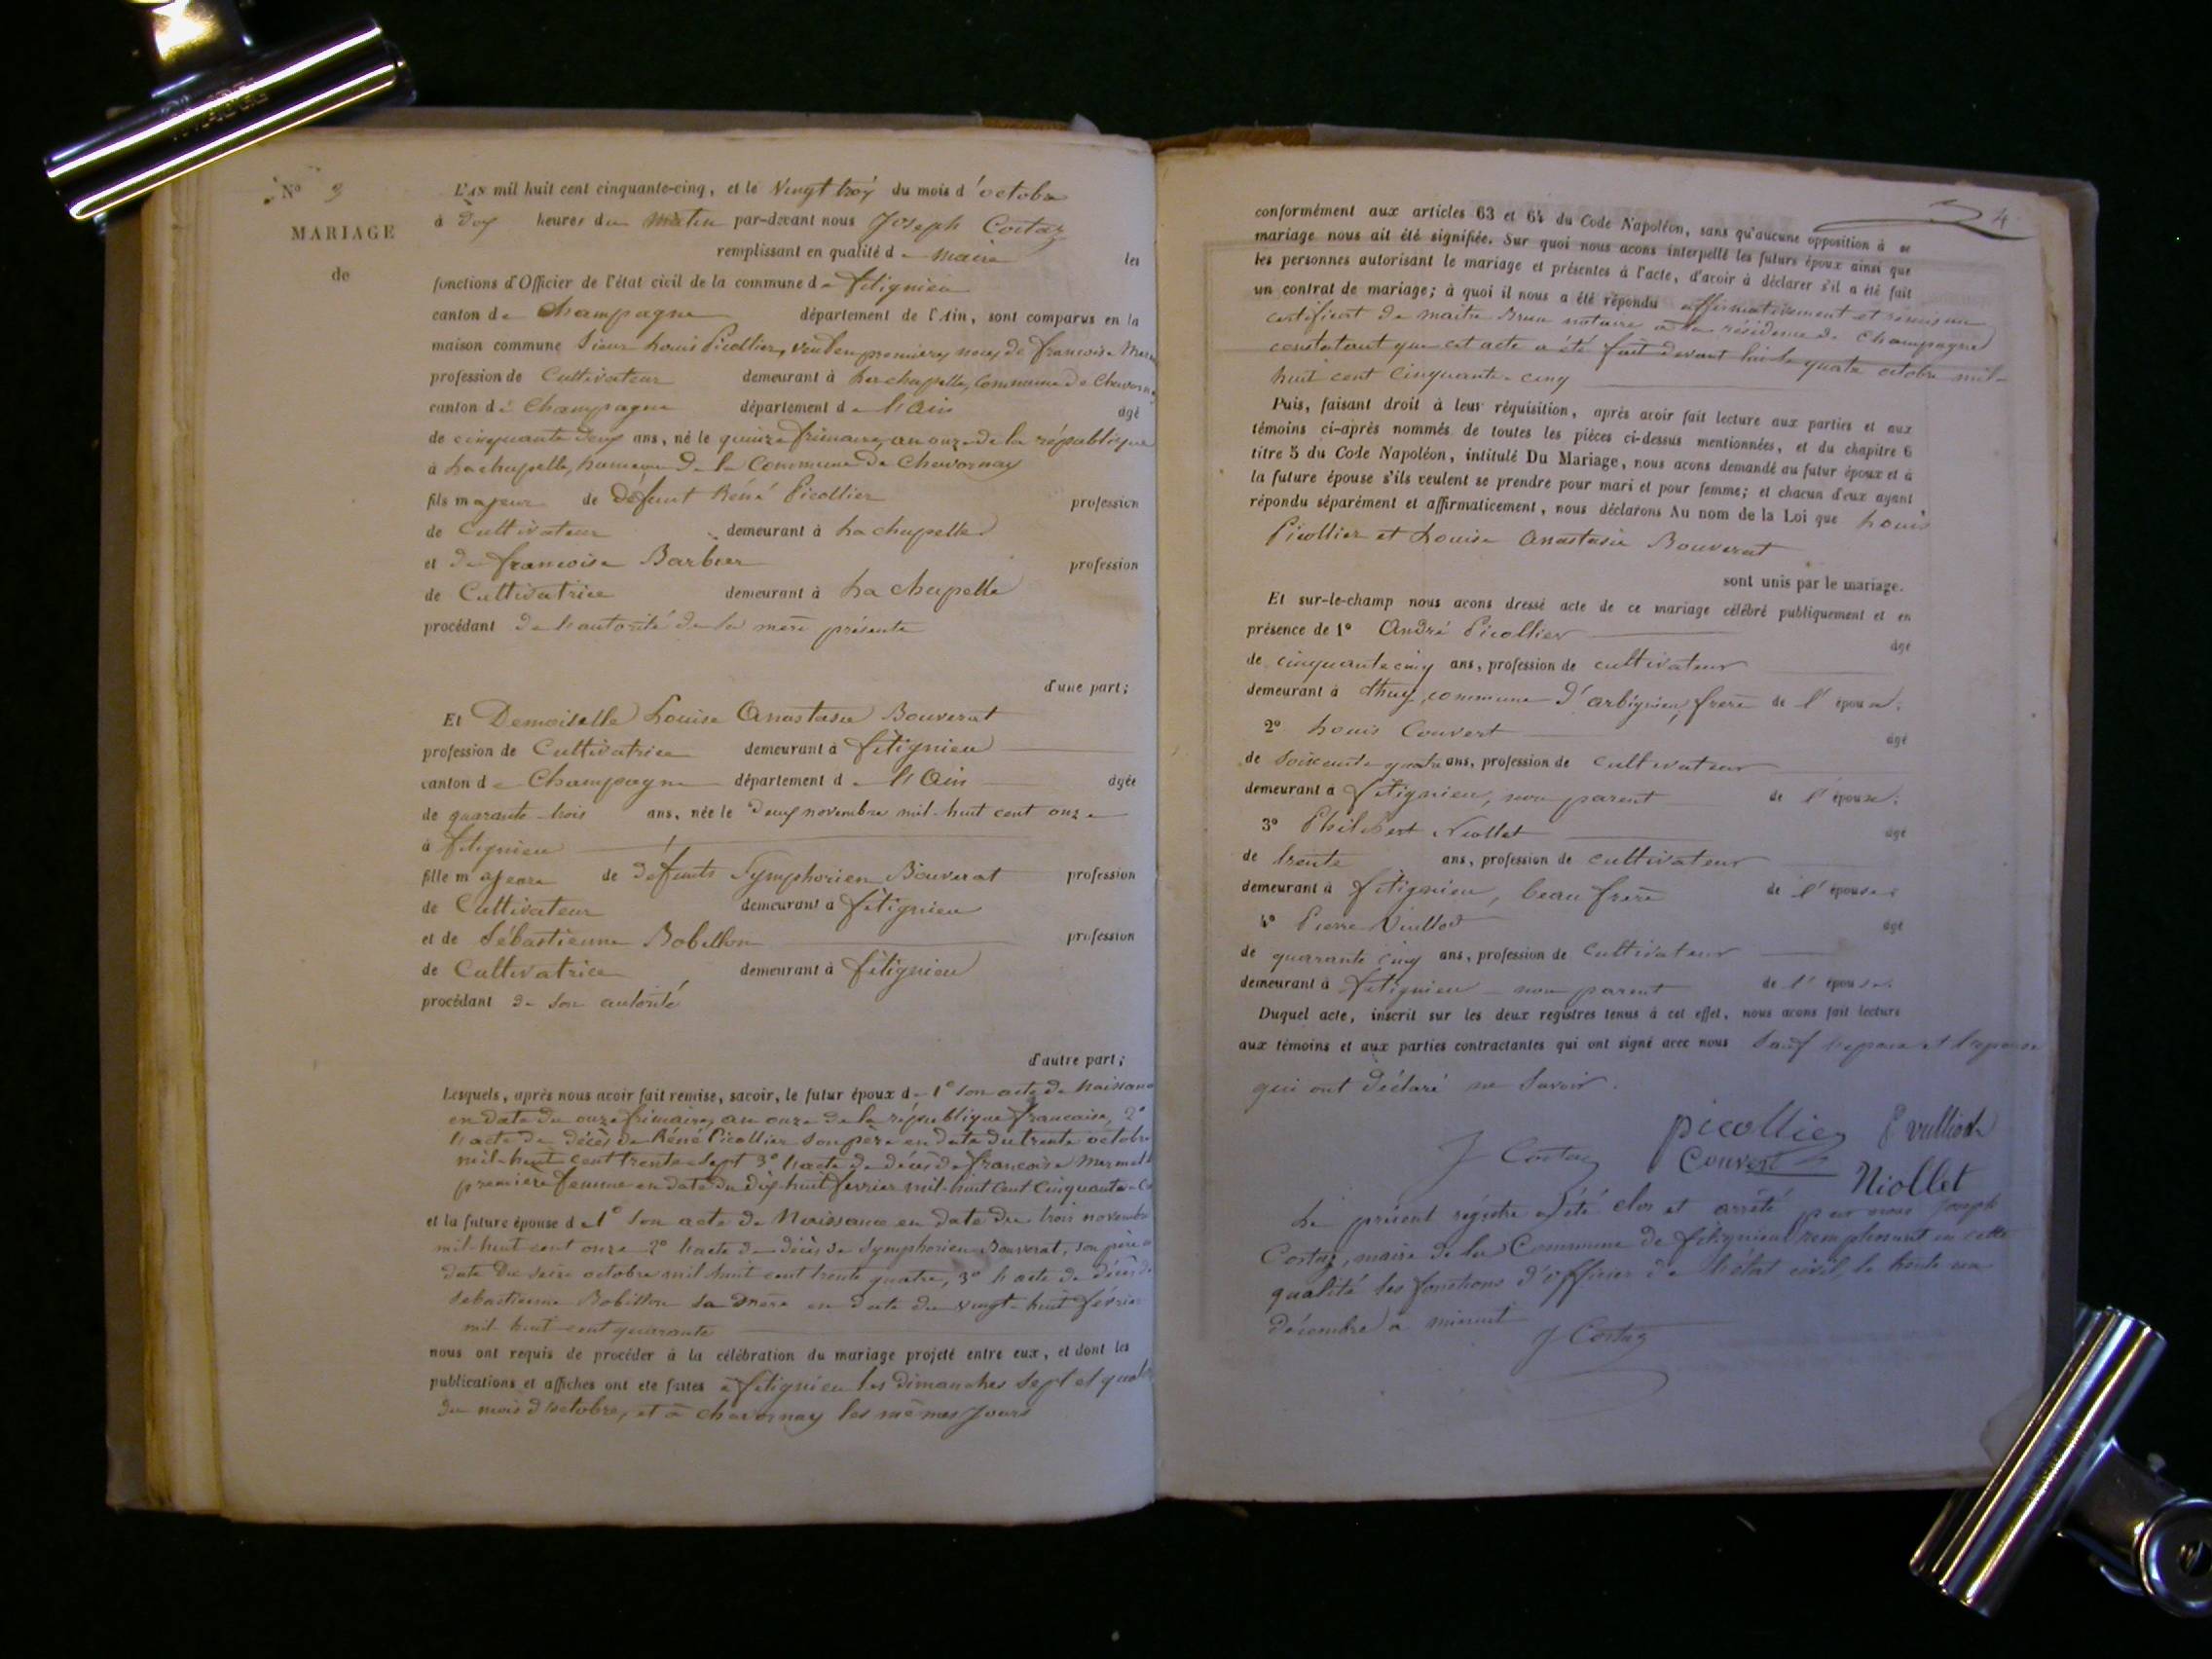 N° 9
MARIAGE
de
L'AN mil huit cent cinquante-cinq, et le Vingt troy du mois d'octobre
à dix heures du matin par-devant nous Joseph Costaz
remplissant en qualité de maire les
fonctions d'Officier de l'état civil de la commune de fitignieu
canton de Champagne département de l'Ain, sont comparus en la
maison commune Sieur Louis Picollier, veuf en premières noces de francoise
profession de Cultivateur demeurant à Lachapelle, Commune de
canton de Champagne département de l'Ain âgé
de cinquante deux ans, né le quinze frimaire, an onze de la république
à Lachapelle, hameau de la Commune de Chavornay
fils majeur de Défunt Réné Picollier profession
de Cultivateur demeurant à Lachapelle
et de francoise Barbier profession
de Cultivatrice demeurant à La chapelle
procédant de l'autorité de la mère présente
d'une part;
Et Demoiselle Louise Anastasie Bouverat
profession de Cultivatrice demeurant à fitignieu
canton de Champagne département de l'Ain âgée
de quarante-trois ans, née le deux novembre mil-huit cent onze
à fitignieu
fille majeure de défunts Symphorien Bouverat profession
de Cultivateur demeurant à fitignieu
et de Sébastienne Bobillon profession
de Cultivatrice demeurant à fitignieu
procédant de son autorité
d'autre part;
Lesquels, après nous avoir fait remise, savoir, le futur époux de 1° son acte de Naissance
en date du onze frimaire, an onze de la république francaise, 2°
l'acte de décès de Réné Picollier son père en date du trente octobre
mil-huit cent trente-sept 3° l'acte de décès de francoise
première femme en date du dix-huit fevrier mil-huit cent cinquante
et la future épouse de 1° Son acte de Naissance en date du trois novembre
mil-huit-cent onze 2° l'acte de décès de Symphorien Bouverat, son père
date du seize octobre mil huit cent trente quatre, 3° l'acte de décès de
Sébastienne Bobillon sa mère en date du vingt-huit février
mil-huit-cent quarante
nous ont requis de procéder à la célébration du mariage projeté entre eux, et dont les
publications et affiches ont été faites à fitignieu les dimanches sept et
du mois d'octobre, et à chavornay les mêmes jours
4
conformément aux articles 63 et 64 du Code Napoléon, sans qu'aucune opposition à ce
mariage nous ait été signifiée. Sur quoi nous avons interpellé les futurs époux ainsi que
les personnes autorisant le mariage et présentes à l'acte, d'avoir à déclarer s'il a été fait
un contrat de mariage; à quoi il nous a été répondu affirmativement et remis un
certificat de maitre Brun notaire à la résidence de Champagne
constatant que cet acte a été fait devant lui le quatre octobre mil-
huit cent cinquante-cinq
Puis, faisant droit à leur réquisition, après avoir fait lecture aux parties et aux
témoins ci-après nommés de toutes les pièces ci-dessus mentionnées, et du chapitre 6
titre 5 du Code Napoléon, intitulé Du Mariage, nous avons demandé au futur époux et à
la future épouse s'ils veulent se prendre pour mari et pour femme; et chacun d'eux ayant
répondu séparément et affirmativement, nous déclarons Au nom de la Loi que Louis
Picollier et Louise Anastasie Bouverat
sont unis par le mariage.
Et sur-le-champ nous avons dressé acte de ce mariage célébré publiquement et en
présence de 1° André Picollier âgé
de cinquante cinq ans, profession de cultivateur
demeurant à thuy, commune d'arbignieu, frère de l'époux.
2° Louis Couvert âgé
de soixante-quatre ans, profession de cultivateur
demeurant à fitignieu, non parent de l'épouse.
3° Philibert Niollet âgé
de trente ans, profession de cultivateur
demeurant à fitignieu, beau frère de l'épouse.
4° Pierre âgé
de quarante cinq ans, profession de cultivateur
demeurant à fitignieu - non parent de l'épouse.
Duquel acte, inscrit sur les deux registres tenus à cet effet, nous avons fait lecture
aux témoins et aux parties contractantes qui ont signé avec nous Sauf l'époux et l'épouse
qui ont déclaré ne Savoir.
picollier P vulliode
J Costaz Couvert Niollet
Le présent régistre a été clos et arrêté par nous Joseph
Costaz, maire de la Commune de fitignieu remplissant en cette
qualité les fonctions d'officier de l'état civil, le trente un
décembre à minuit
J Costaz